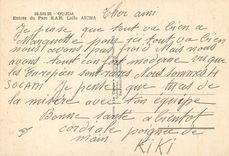 OUJDA
Entrée du Parc S.A.R. Lalla AICHA
Cher ami
Je pense que tout va bien a
Marquette pour ici tout va bien
nous avons pas froi Mais nous
avons tout confort moderne vu que
les Européen sont rares Nous sommes 4
SOCAM Je pense que Mas de
la misère avec ton équipe
Bonne santé a bientot
cordiale poigné de
main
KiKi